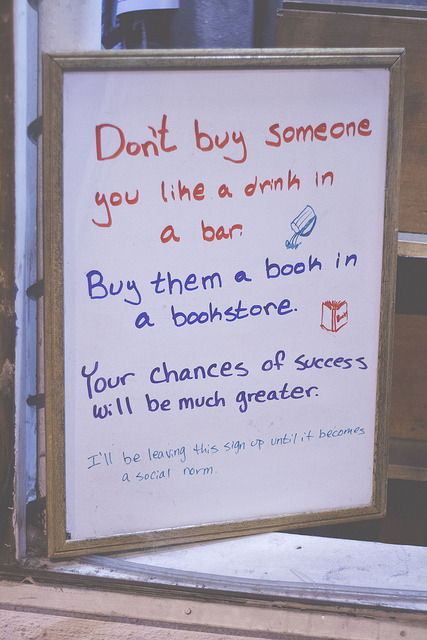 Don't buy someone
you like a drink in
a bar.
Buy them a book in
a bookstore.
Your chances of success
will be much greater.
I'll be leaving this sign up until it becomes
a social norm.